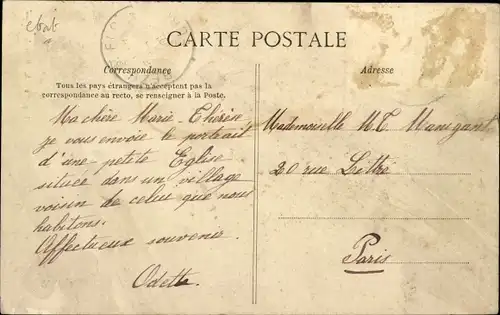 CARTE POSTALE
Correspondance
Tous les pays étrangers n'acceptent pas la
correspondance au recto, se renseigner à la Poste.
Ma chère Marie-Thérèse
je vous envoie le portrait
d'une petite Eglise
située dans un village
voisin de celui que nous
habitons.
Affectueux souvenir.
Odette
Adresse
Mademoiselle M.T.
20 rue Littré
Paris